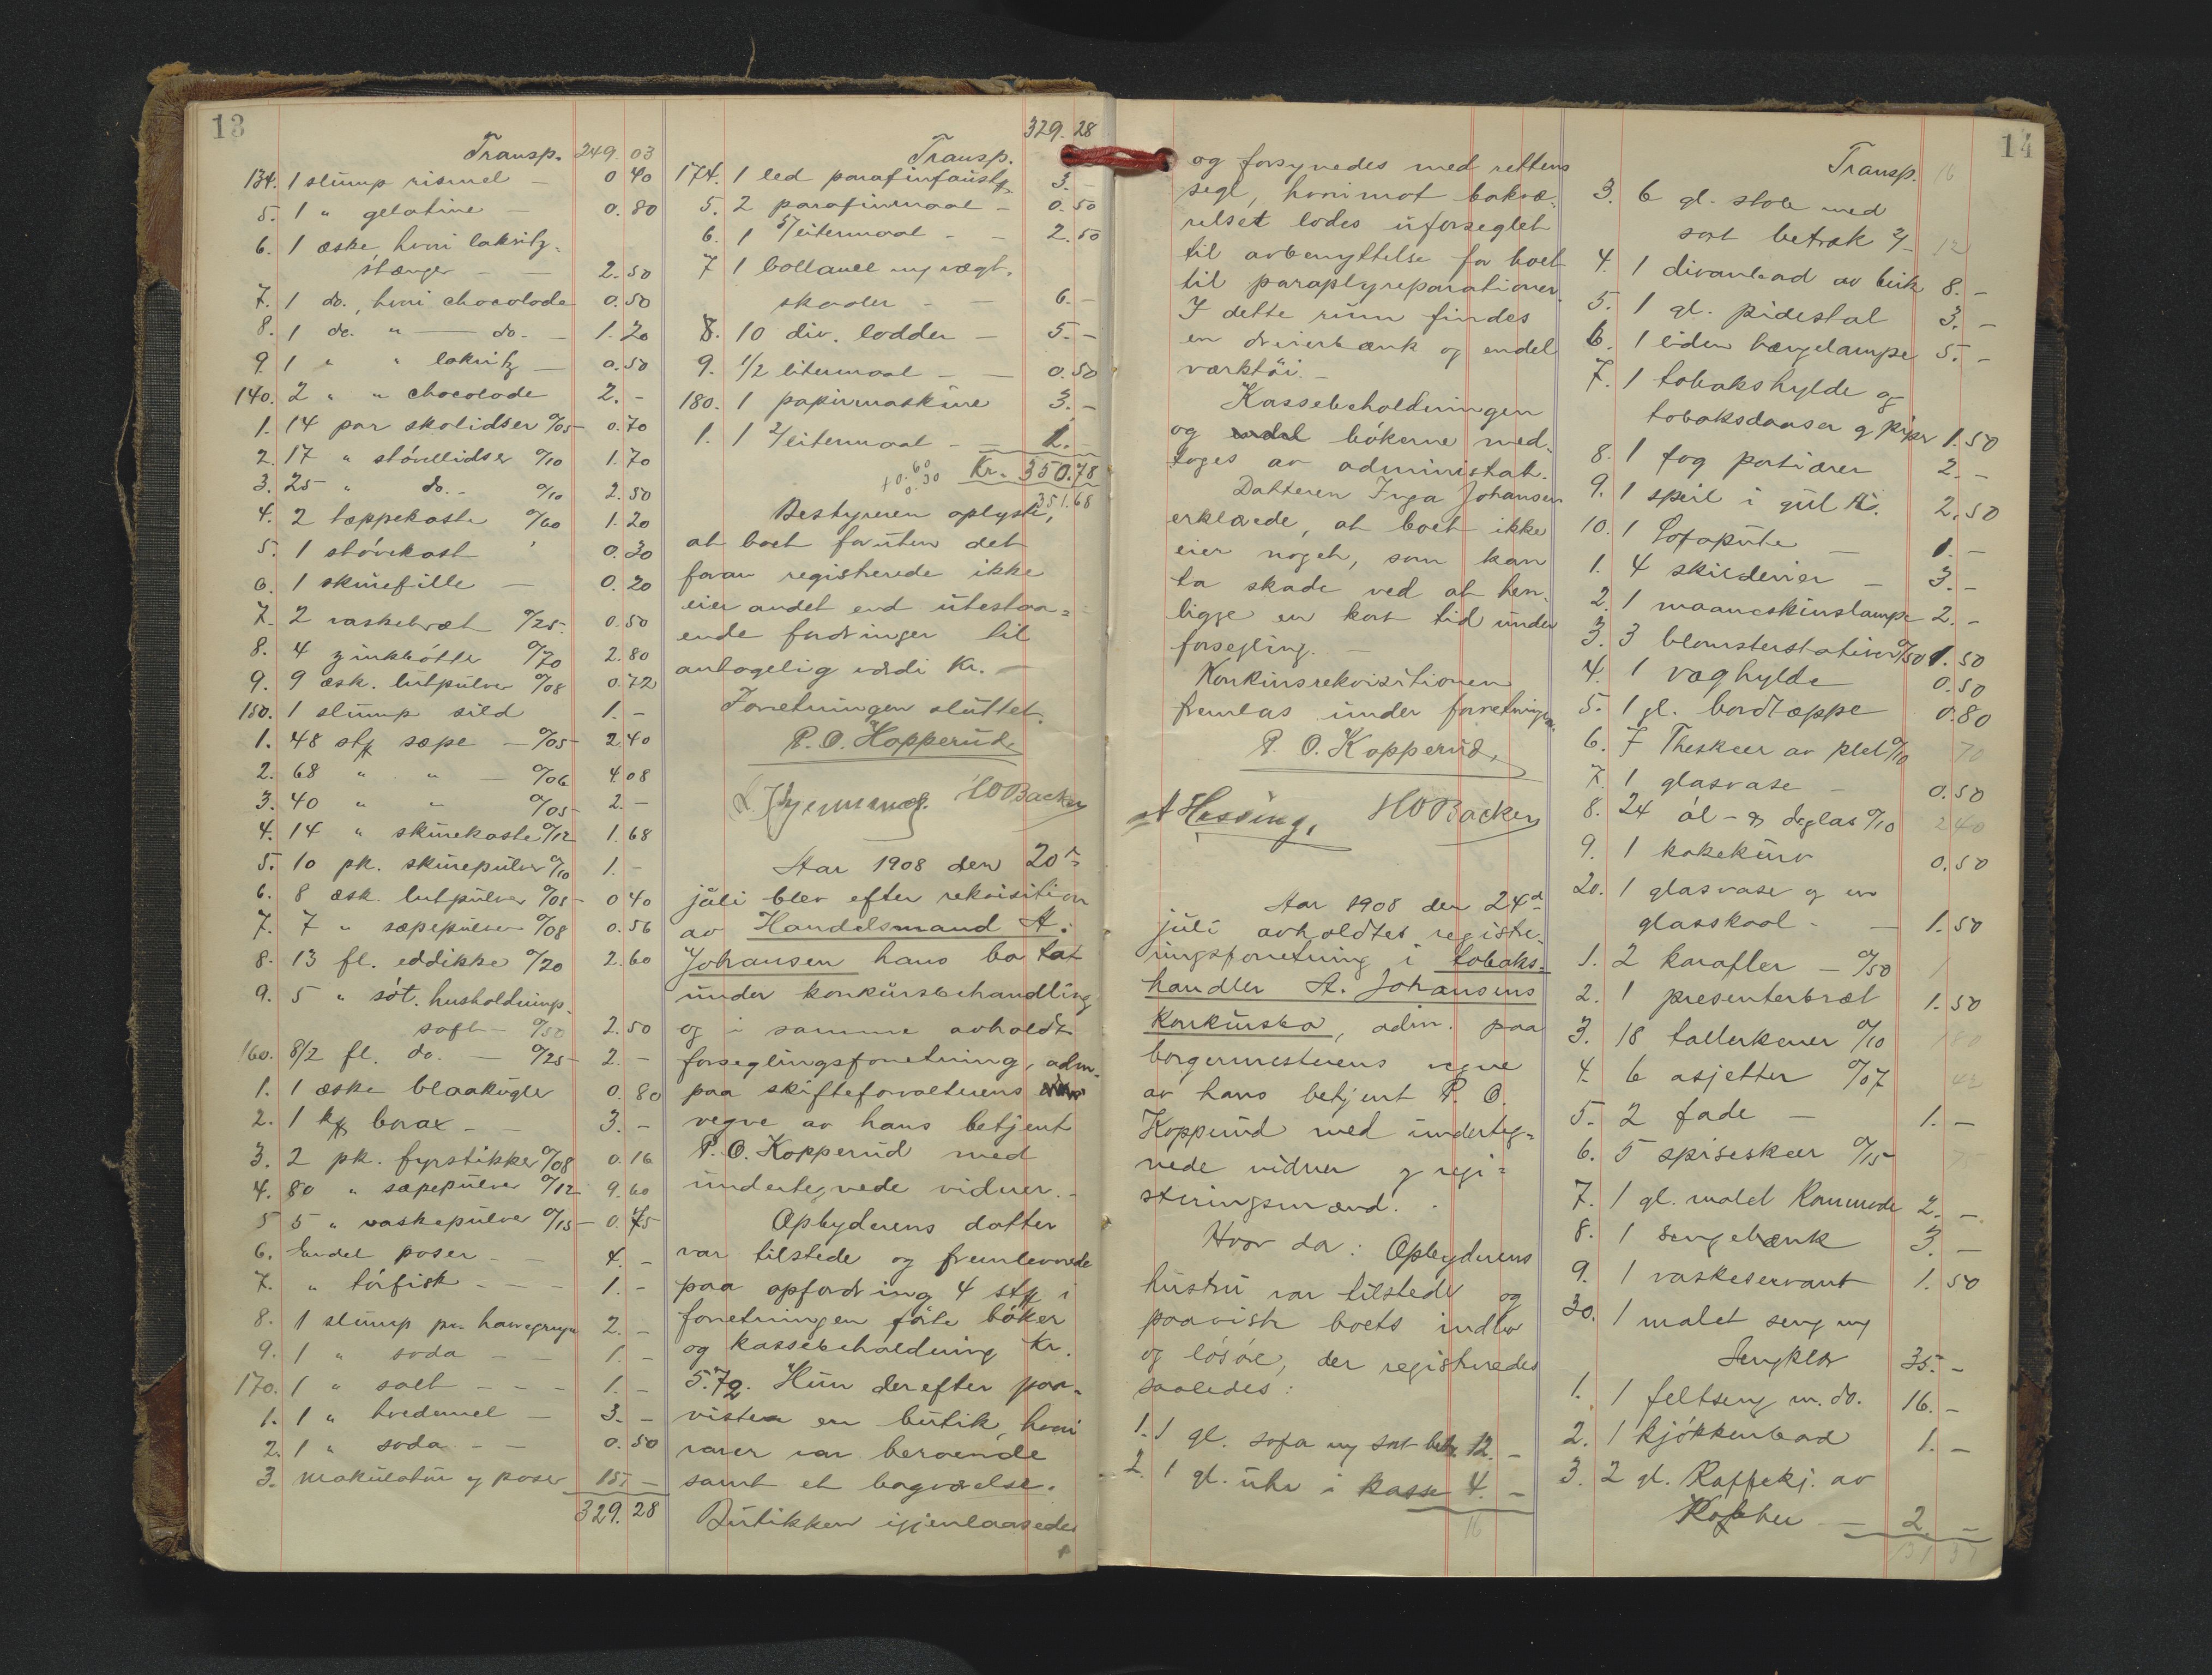 13
Transp. 249.03
134. 1 slump rismel — 0 40
5. 1 " gelatine — 0.80
6. 1 æske, hvori lakritz-
stænger — — 2.50
7. 1 do., hvori chocolade 0.50
8. 1 do. " — do. — 1.20
9. 1 " " lakritz — 0.50
140. 2 " " chocolade 2. -
1. 14 par skolidser %05 0.70
2. 17 " støvellidser %10 1.70
3. 25 " do. - %10 2.50
4. 2 tæppekoste %60 1.20
5. 1 støvekost 0.30
6. 1 skurefille — 0.20
7. 2 vaskebræt %25 0.50
8. 4 zinkbøtter %70 2.80
9. 9 æsk. lutpulver %08 0.72
150. 1 slump sild 1. -
1. 48 stk sæpe — %05 2.40
2. 68 " " — %06 4.08
3. 40 " " %05 2. -
4. 14 " skurekoste %12 1.68
5. 10 pk. skurepulver %10 1. -
6. 8 æsk. lutpulver %05 0 40
7. 7 " sæpepulver %08 0.56
8. 13 fl. eddikke %20 2.60
9. 5 " søt. husholdnings-
saft — %50 2.50
160. 8/2 fl. do. — %25 2. -
1. 1 æske blaakugler 0.80
2. 1 kg borax - - 3. -
3. 2 pk. fyrstikker %08 0.16
4. 80 " sæpepulver %12 9.60
5 5 " vaskepulver %15 0.75
6. Endel poser - 4. -
7. " tørfisk - - - 1. -
8. 1 slump pr. havregryn 2. -
9. 1 " soda - - 1. -
170. 1 " salt - - - 1. -
1. 1 " hvedemel — 3. -
2. 1 " soda - - 0.50
3. makulatur og poser 15. -
329.28
329.28
Transp.
174. 1 led parafinfaustg 3. -
5. 2 parafinmaal - 0.50
6. 1 5/litermaal - - 2.50
7 1 bollanse m/ vægt-
skaaler - - 6. -
8. 10 div. lodder — 5. -
9. 1/2 litermaal - - 0.50
180. 1 papirmaskine 3. -
1. 1 2/litermaal - - 1. -
Kr. 350.78
+0.60
0.30
351.68
Bestyreren oplyste,
at boet foruten det
foran registrerede ikke
eier andet end utestaa=
ende fordringer til
antagelig værdi Kr. —
Forretningen sluttet.
P. O. Kopperud.
HO Backer
Aar 1908 den 20de
juli blev efter rekvisition
av Handelsmand A.
Johansen hans bo tat
under konkursbehandling
og i samme avholdt
forseglingsforretning, adm.
paa skifteforvalterens
vegne av hans betjent
P. O. Kopperud med
undertegnede vidner. -
Opbyderens datter
var tilstede og fremleverede
paa opfordring 4 stk i
forretningen førte bøker
og kassebeholdning Kr.
5.72. Hun derefter paa-
viste en butik, hvori
varer var beroende
samt et bagværelse.
Butikken igjenlaasedes
14
og forsynedes med rettens
segl, hvorimot bakvæ-
relset lodes uforseglet
til avbenyttelse for boet
til paraplyreparationer.
I dette rum findes
en dreierbænk og endel
værktøi. -
Kassebeholdningen
og bøkerne med-
toges av administrat.
Datteren Inga Johansen
erklærede, at boet ikke
eier noget, som kan
ta skade ved at hen-
ligge en kort tid under
forsegling. —
Konkursrekvisitionen
fremlas under forretningen.
P. O. Kopperud,
A Hessing, HO Backer
Aar 1908 den 24de
juli avholdtes registre-
ringsforretning i tobaks-
handler A. Johansens
Konkursbo, adm. paa
borgermesterens vegne
av hans betjent P. O.
Kopperud med underteg=
nede vidner og regi=
streringsmænd. -
Hvor da: Opbyderens
hustru var tilstede og
paaviste boets indbo
og løsøre, der registreredes
saaledes:
1. 1 gl. sofa m/ sort betr. 12. -
2. 1 gl. uhr i kasse 4. -
16
Transp. 16
3. 6 gl. stole med
sort betræk 2/- 12
4. 1 divanbord av birk 8. -
5. 1 gl. pidestal 3. -
6. 1 liden hængelampe 5. -
7. 1 tobakshylde og
tobaksdaaser og piper 1.50
8. 1 fag portiærer 2. -
9. 1 speil i gul R. 2.50
10. 1 Sofapute — 1. -
1. 4 skilderier — 3. -
2. 1 maaneskinslampe 2. -
3. 3 blomsterstativer %50 1.50
4. 1 væghylde 0.50
5. 1 gl. bordtæppe 0.80
6. 7 Theskeer av plet %10 70
7. 1 glasvase - 0.50
8. 24 øl- & dr.glas %10 240
9. 1 kakekurv 0.50
20. 1 glasvase og en
glasskaal - — 1.50
1. 2 karafler — %50 1
2. 1 presenterbræt 1.50
3. 18 tallerkener %10 180
4. 6 asjetter %07 42
5. 2 fade — 1. -
6. 5 spiseskeer %15 75
7. 1 gl. malet Kommode 2. -
8. 1 Sengebænk 3. -
9. 1 vaskeservant 1.50
30. 1 malet seng m/
Sengklær 35. -
1. 1 feltseng m. do. 16. -
2. 1 kjøkkenbord 1. -
3. 2 gl. Kaffekj. av
Kobber — 2. -
131 37